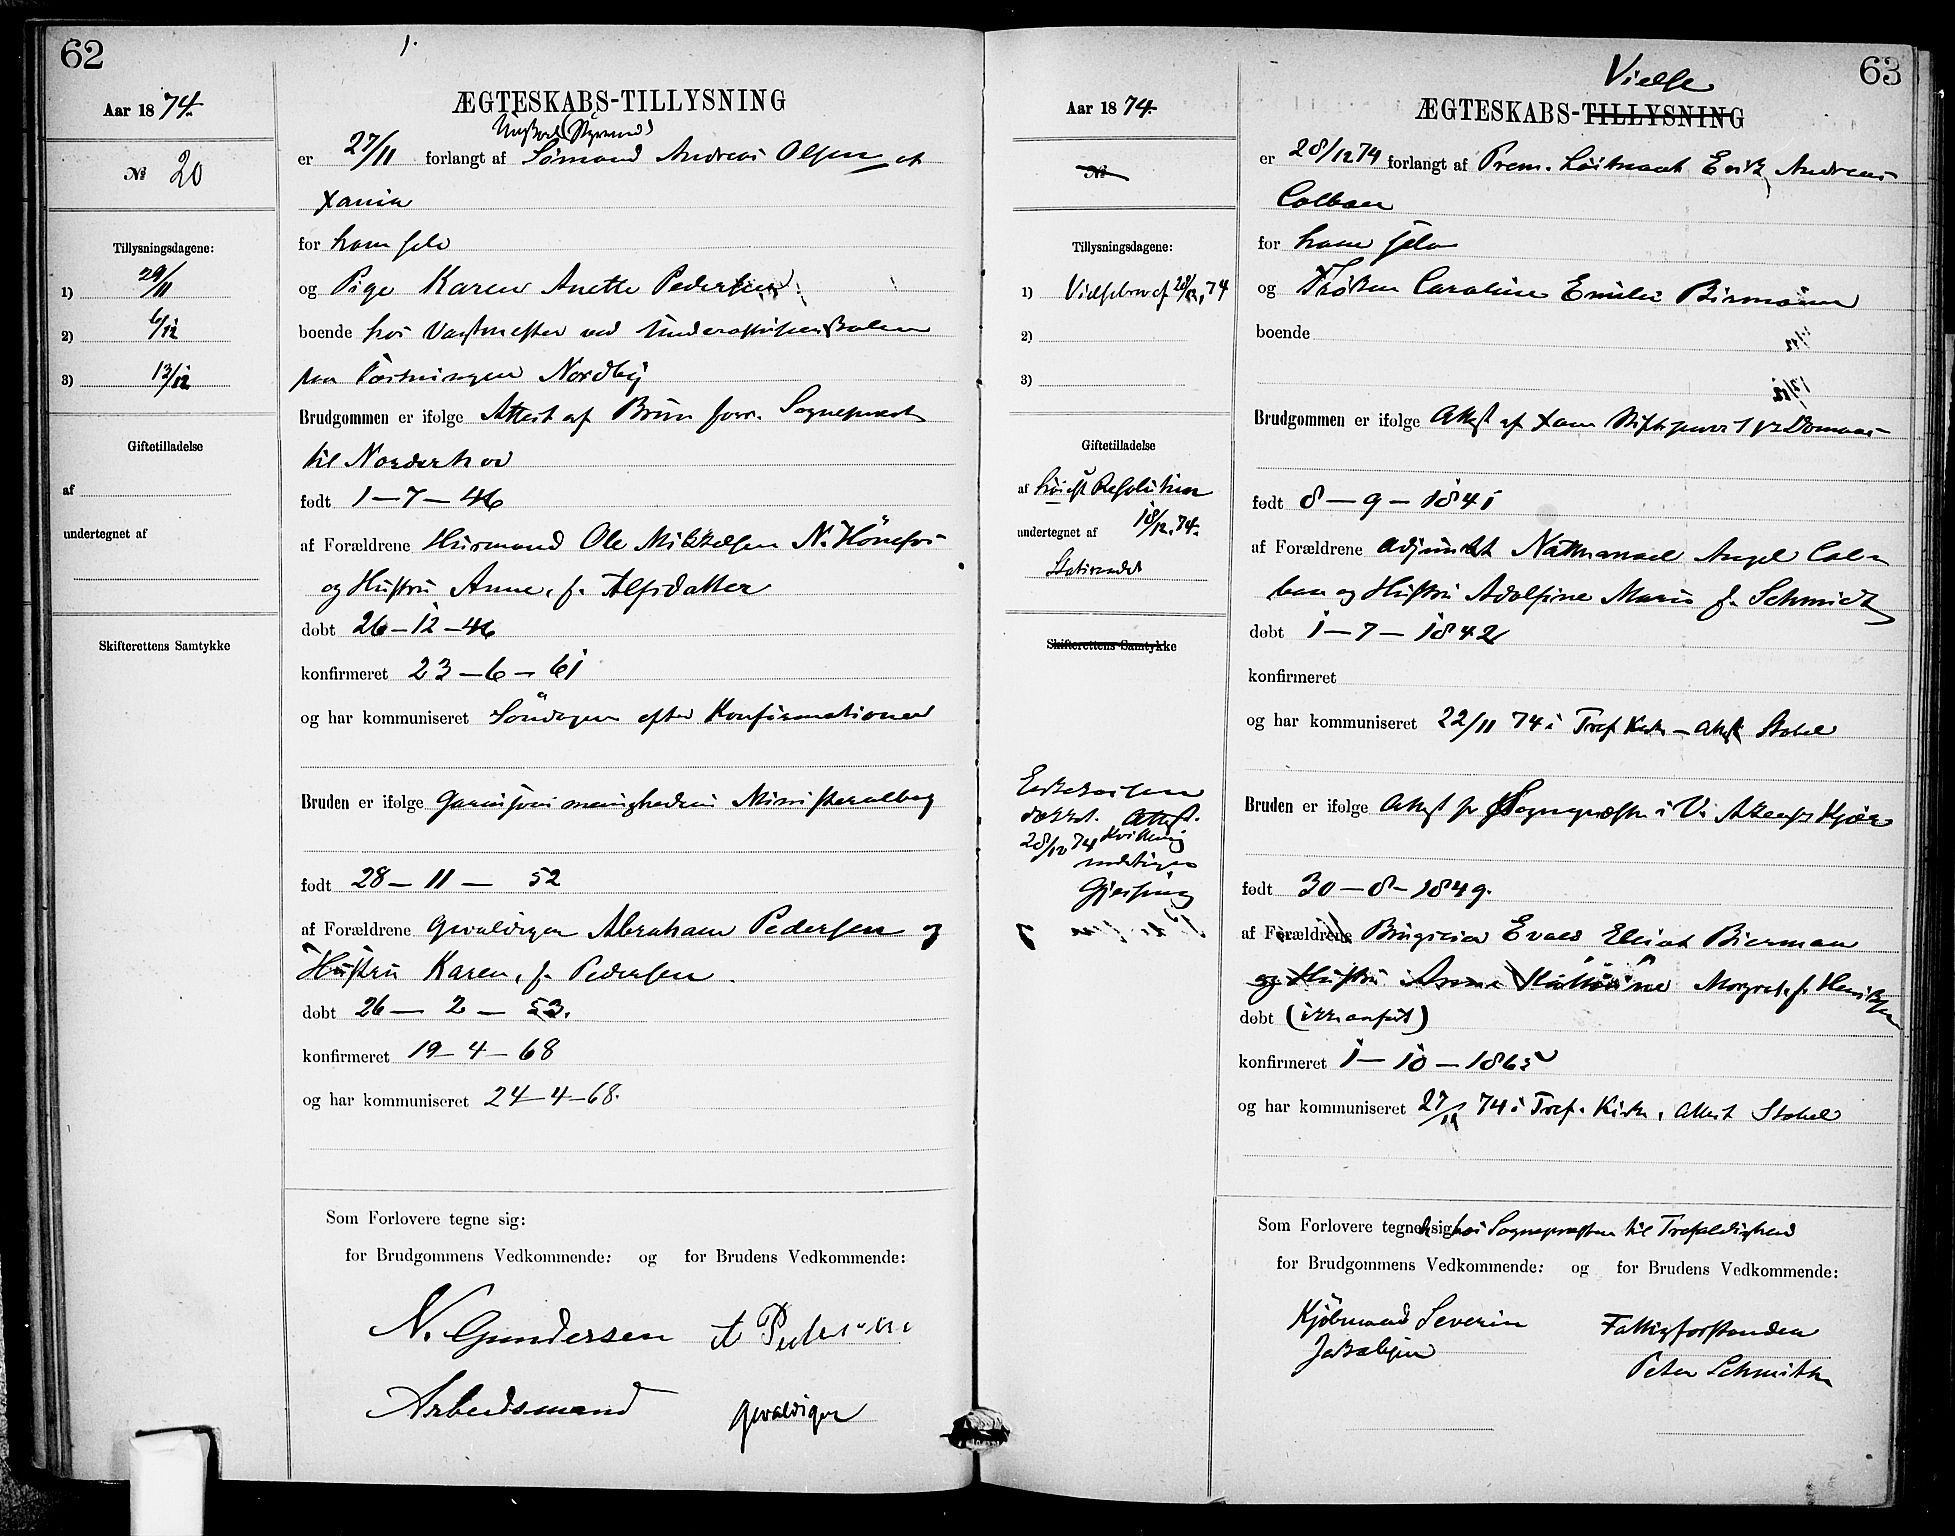 62
Aar 1874.
№ 20
Tillysningsdagene:
1) 29/11
2) 6/12
3) 13/12
Giftetilladelse
af
undertegnet af
Skifterettens Samtykke
ÆGTESKABS-TILLYSNING
Ungkarl (Styrmand)
er 27/11 forlangt af Sømand Andreas Olsen
Xania
for ham selv
og Pige Karen Anette Pedersen
boende hos Vagtmester ved
paa Fæstningen Nordby
Brudgommen er ifølge Attest af Brun Sogneprest
til Norderhov
født 1-7-46
af Forældrene Husmand Ole Mikkelsen N. Hønefos
og Hustru Anne, f. Alfsdatter
døbt 26-12-46
konfirmeret 23-6-61
og har kommuniseret Søndagen efter Konfirmationen
Bruden er ifølge Garnisonsmenighedens Ministerialbog
født 28-11- 52
af Forældrene Gevaldiger Abraham Pedersen og
Hustru Karen, f. Pedersen.
døbt 26- 2 - 53.
konfirmeret 19-4-68
og har kommuniseret 24-4-68.
Som Forlovere tegne sig:
for Brudgommens Vedkommende: og for Brudens Vedkommende:
N. Gundersen A Pedersen
Arbeidsmand gevaldiger
63
Aar 1874.
№
Tillysningsdagene:
1) Vielsebrev af 28/12, 74
2)
3)
Giftetilladelse
af høiest Resolution
undertegnet af 18/12.74.
Skifterettens Samtykke
Attest.
28/12 74 Kvittering
Gjessing
Vielse
ÆGTESKABS-TILLYSNING
er 28/12 74 forlangt af Prem. Løitnant Erik Andreas
Colban
for ham selv
og Frøken Caroline Emilie Birmann
boende
Brudgommen er ifølge Attest af Xania
født 8-9-1841
af Forældrene Adjunkt Nathanael Angel Col-
ban og Hustru Adolfine Marie f. Schmidt
døbt 1-7-1842
konfirmeret
og har kommuniseret 22/11 74 i Tref Kirke - Attest
Bruden er ifølge Attest fr Sognepræsten i V. Aker
født 30-8-1849.
af Forældrene Evald Bierman
og Hustru Margret. f. Henriksen
døbt (ikke anført)
konfirmeret 1-10-1865
og har kommuniseret 27/11 74 i Tref. Kirke, Attest
Som Forlovere tegne sig hos Sognepræsten til Trefoldighed
for Brudgommens Vedkommende: og for Brudens Vedkommende:
Kjøbmand Severin Fattigforstander
Jakobsen Peter Schmith